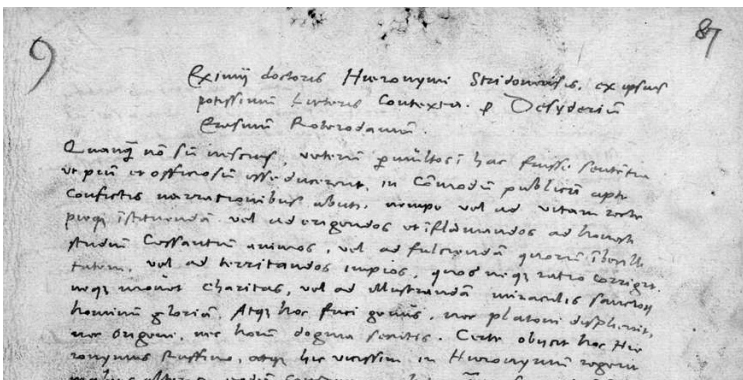 9
87
Eximii doctoris Hieronymi Stridonensis, ex ipsius
potissimum Literis Contexta. p Desyderiũ
Erasmũ Roterodamũ.
Quanq̃ nõ sũ nescius, veterũ p̃multos ĩ hac fuisse sentẽtia
ut piũ et officiosũ esse ducerent, in Cõmodũ publicũ apte
Confictis narrationibus abuti, nempe vel ad vitam recte
pieq; ĩstituendã, vel ad erigendos et ĩflãmandos ad honesti
studium Cessantium animos, vel ad fulciendã quorũ ĩbecilli
tatem, vel ad territandos impios, quos neq; ratio corrigit,
neq; mouet charitas, vel ad illustrandã miraculis sanctorũ
hominum gloriã. Atq; hoc fuci genus, nec platoni displicuit,
nec origeni, nec horũ dogma
Certe obiicit hoc Hie
ronymus Ruffino, atq; hic vicissim in Hieronymũ